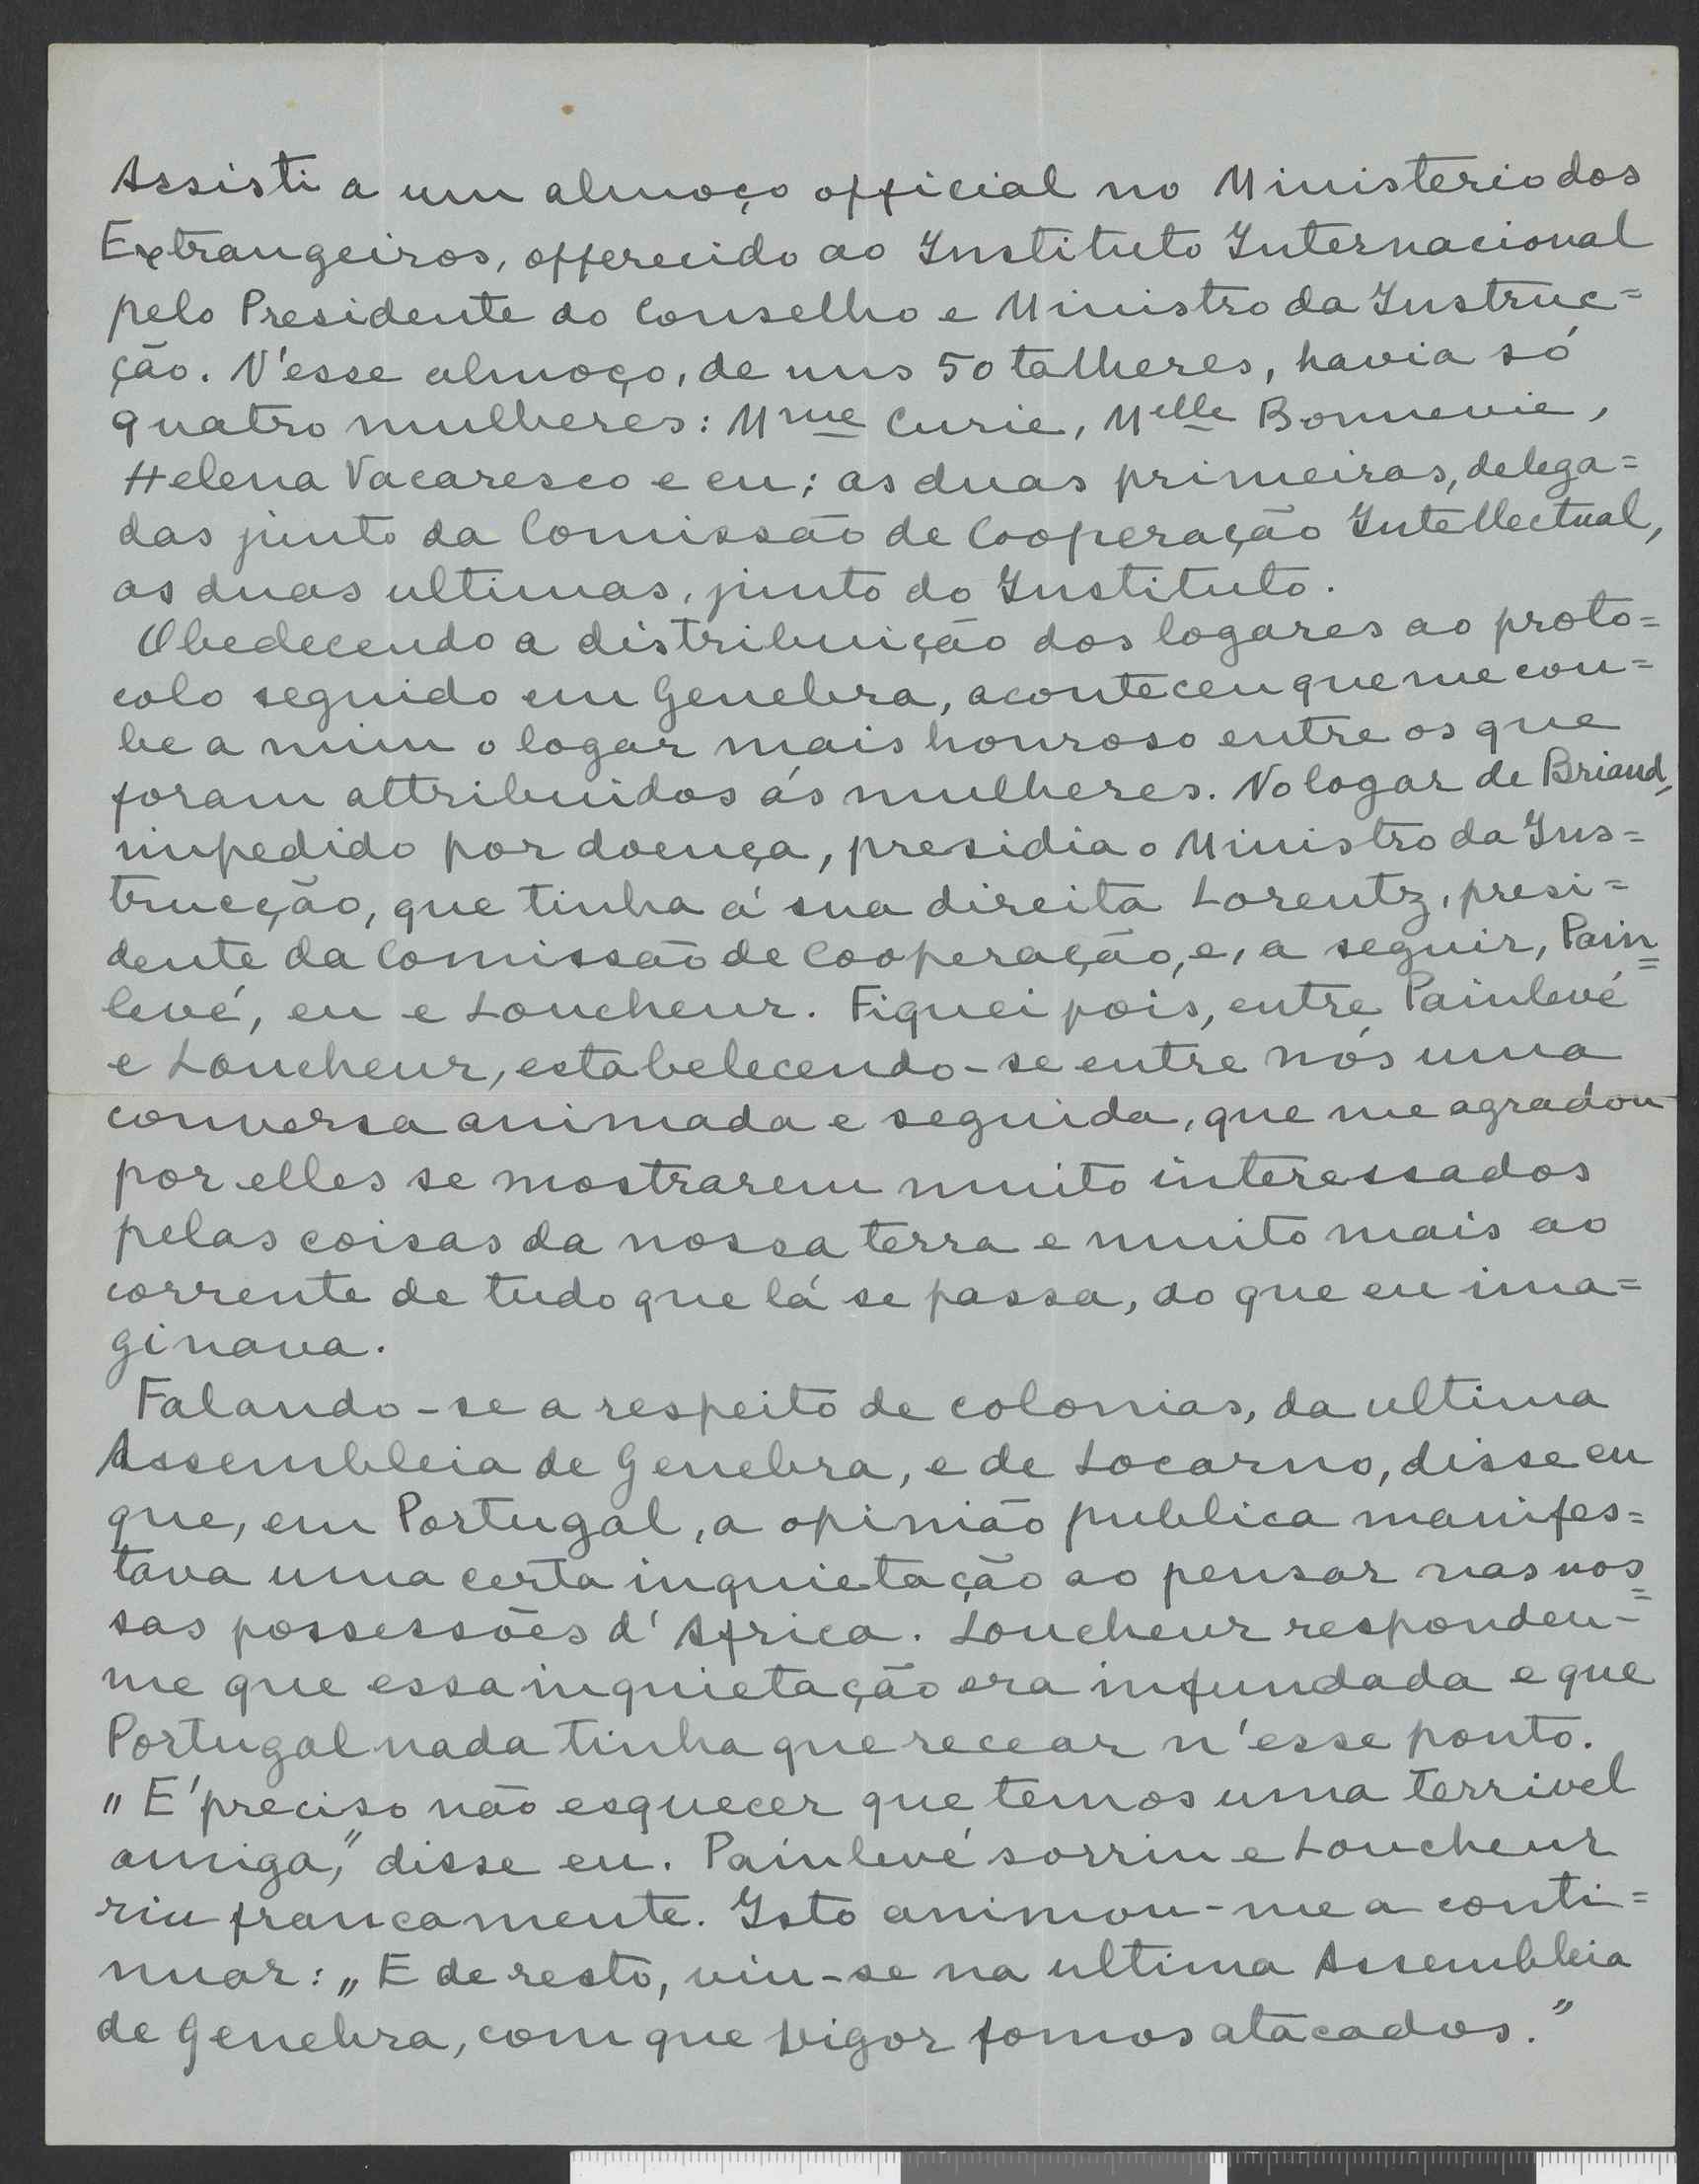 Assisti a um almoço official no Ministerio dos
Extrangeiros, offerecido ao Instituto Internacional
pelo Presidente do Conselho e Ministro da Instruc=
ção. N'esse almoço, de uns 50 talheres, havia só
quatro mulheres: Mme Curie, Melle Bonnevie,
Helena Vacaresco e eu; as duas primeiras, delega=
das junto da Comissão de Cooperação Intellectual,
as duas ultimas, junto do Instituto.
Obedecendo a distribuição dos logares ao proto=
colo seguido em Genebra, aconteceu que me cou=
be a mim o logar mais honroso entre os que
foram attribuidos ás mulheres. No logar de Briand,
impedido por doença, presidia o Ministro da Ins=
trucção, que tinha á sua direita Lorentz, presi=
dente da Comissão de Cooperação, e, a seguir, Pain=
levé, eu e Loucheur. Fiquei pois, entre Painlevé
e Loucheur, estabelecendo-se entre nós uma
conversa animada e seguida, que me agradou
por elles se mostrarem muito interessados
pelas coisas da nossa terra e muito mais ao
corrente de tudo que lá se passa, do que eu ima=
ginava.
Falando-se a respeito de colonias, da ultima
Assembleia de Genebra, e de Locarno, disse eu
que, em Portugal, a opinião publica manifes=
tava uma certa inquietação ao pensar nas nos=
sas possessões d'Africa. Loucheur respondeu-
me que essa inquietação era infundada e que
Portugal nada tinha que recear n'esse ponto.
„E' preciso não esquecer que temos uma terrivel
amiga,” disse eu. Painlevé sorriu e Loucheur
riu francamente. Isto animou-me a conti=
nuar: „E de resto, viu-se na ultima Assembleia
de Genebra, com que vigor fomos atacados.”